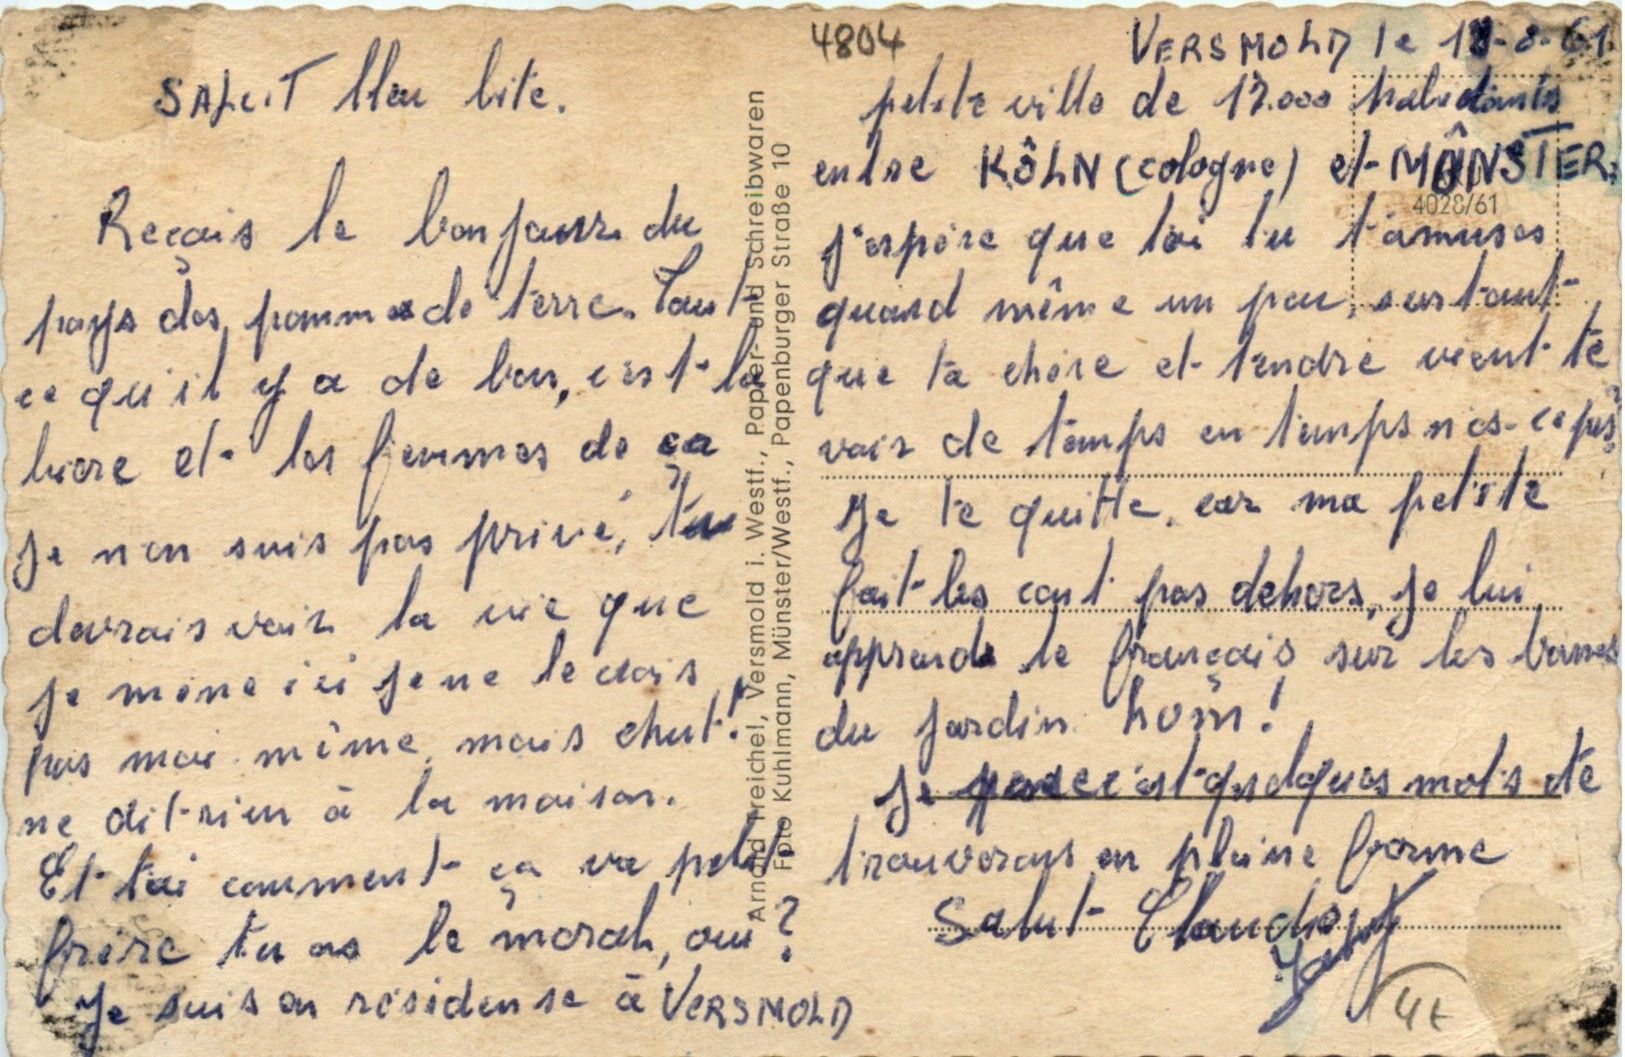 SALUT bleu bite.
Reçois le bonjour du
pays des pomme de terre. Tout
ce qu'il y a de bon, c'est la
biere et les femmes de ça
je n'en suis pas privé, tu
devrais voir la vie que
je mène ici je ne le crois
pas moi même, mais chut!
ne dit rien à la maison.
Et toi comment ça va petit
frère tu as le moral, oui?
Je suis en résidense à VERSMOLD
Arnold Freichel, Versmold i. Westf., Papier- und Schreibwaren
Foto Kuhlmann, Münster/Westf., Papenburger Straße 10
4804
VERSMOLD le -8-61
petite ville de habitants
entre KÔLN (cologne) et MÛNSTER.
4028/61
j'espère que toi tu t'amuses
quand même un peu, surtout
que ta chère et tendre vient te
voir de temps en temps n'es-ce pas?
Je te quitte, car ma petite
fait les cent pas dehors, je lui
apprends le français sur les bancs
du jardin hom!
Je quelques mots te
trouverons en pleine forme
Salut Claude
4t